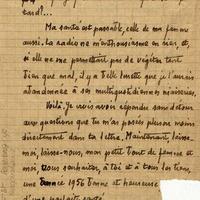 tard!...
Ma santé est passable, celle de ma femme
aussi. La radio ne m'enthousiasme en rien, et,
si elle ne me permettait pas de végéter tant
bien que mal, il y a belle lurette que je l'aurais
abandonnée à ses multiquotidiennes niaiseries.
Voilà. Je crois avoir répondu sans détour
aux questions que tu m'as posées plus ou moins
directement dans ta lettre. Maintenant, laisse-
moi, laisse-nous, mon petit bout de femme et
moi, vous souhaiter, à toi et à tous les tiens,
une année 1956 bonne et heureuse
d'une parfaite santé